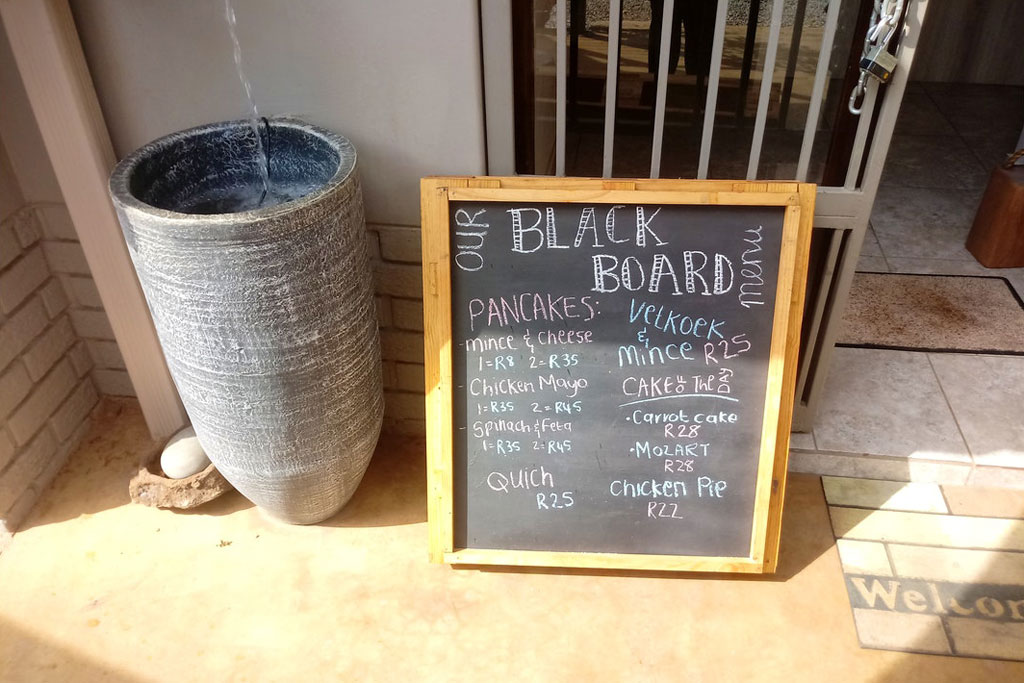 OUR BLACK BOARD menu
PANCAKES:
- mince & cheese
1=R8 2=R35
- Chicken Mayo
1=R35 2=R45
- Spinach & Feta
1=R35 2=R45
Quich
R25
Velkoek
&
mince R25
CAKE OF The DAY
• Carrot cake
R28
• MOZART
R28
Chicken Pie
R22
Welcom